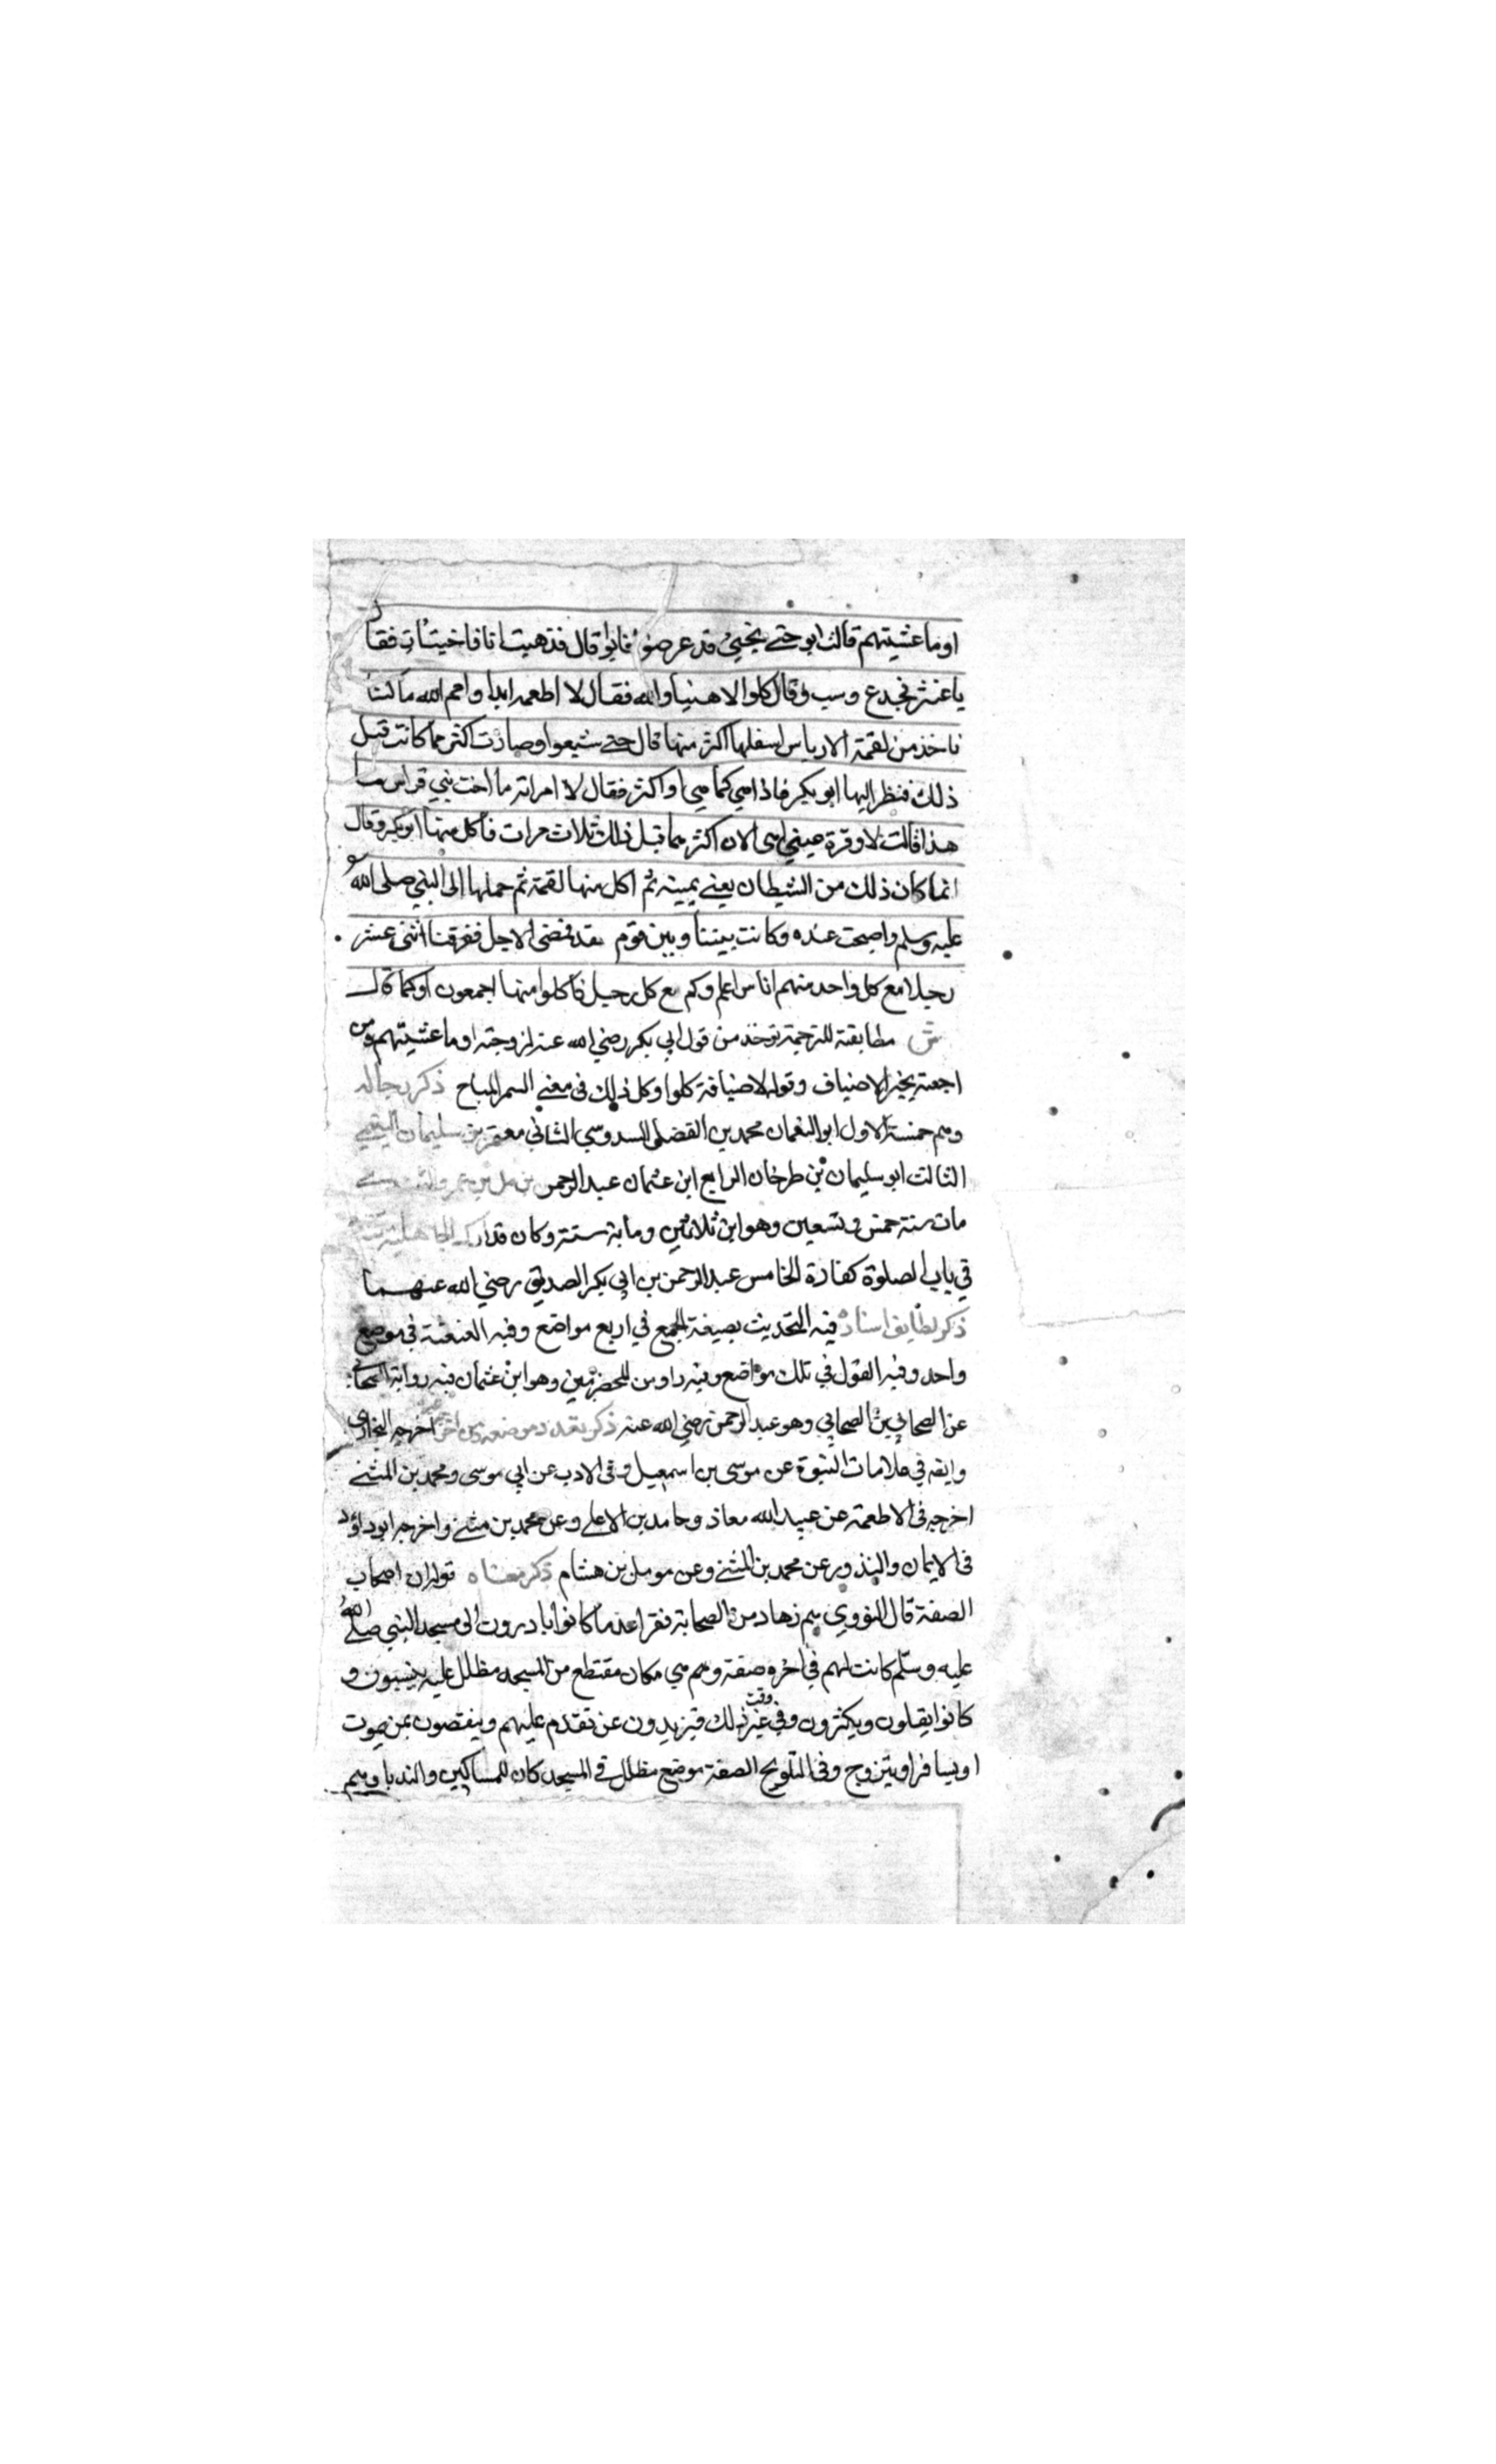 اوما عشيتهم قالت ابو حتى يجيئ قد عرضوا فابوا قال فذهبت انا فاختبات فقال
يا غنثر فجدع وسب وقال كلوا لا هنيا والله فقال لا اطعمه ابدا وايم الله ما كنا
ناخذ من لقمة الا ربا من اسفلها اكثر منها قال حتى شبعوا وصارت اكثر مما كانت قبل
ذلك فنظر اليها ابو بكر فاذا هي كما هي او اكثر فقال لا امراته ما اخت بني فراس ما
هذا قالت لا وقرة عيني لهي الان اكثر مما قبل ذلك ثلاث مرات فاكل منها ابو بكر وقال
انما كان ذلك من الشيطان يعني يمينه ثم اكل منها لقمة ثم حملها الى النبي صلى الله
عليه وسلم واصبحت عنده وكانت بيننا وبين قوم عقد فمضى الاجل ففرقنا اثنى عشر
رجلا مع كل واحد منهم اناس اعلم وكم مع كل رجل فاكلوا منها اجمعون او كما قال
ش مطابقته للترجمة توخذ من قول ابي بكر رضي الله عنه لزوجته او ما عشيتهم ومن
اجعته بخبر الاضياف وقوله لاضيافه كلوا وكل ذلك في معنى السمر المباح ذكر رجاله
وهم خمسة الاول ابو النعمان محمد بن الفضل السدوسي الثاني معتمر بن سليمان التيمي
الثالث ابو سليمان بن طرخان الرابع ابن عثمان عبد الرحمن بن مل بن عمرو النهدي
مات سنة خمس وتسعين وهو ابن ثلاثين ومابة سنة وكان قد ادرك الجاهلية
في باب الصلوة كفارة الخامس عبد الرحمن بن ابي بكر الصديق رضي الله عنهما
ذكر لطايف اسناده فيه التحديث بصيغة الجمع في اربع مواضع وفيه العنعنة في موضع
واحد وفيه القول في ثلث مواضع وفيه راو من المخضرمين وهو ابن عثمان فيه رواية الصحابي
عن الصحابي بن الصحابي وهو عبد الرحمن رضي الله عنه ذكر تعدد موضعه ومن اخرجه اخرجه البخاري
وايضه في علامات النبوة عن موسى بن اسمعيل وفي الادب عن ابي موسى ومحمد بن المثنى
اخرجه في الاطعمة عن عبيد الله معاذ وحامد بن الاعلى وعن محمد بن مثنى واخرجه ابو داؤد
في الايمان والنذور عن محمد بن المثنى وعن مومل بن هشام ذكر معناه قوله ان اصحاب
الصفة قال النووي هم زهاد من الصحابة فقرا غرباء كانوا يادرون الى مسجد النبي صلى الله
عليه وسلم كانت لهم في اخره صفة وهم هي مكان مقتطع من المسجد مظلل عليه يبيتون و
كانوا يقلون ويكثرون وفي وقت غير ذلك فيزيدون عن تقدم عليهم وينقصون بمن يموت
او يسافر او يتزوج وفي التلويح الصفة موضع مظلل في المسجد كان للمساكين والغربا وهم